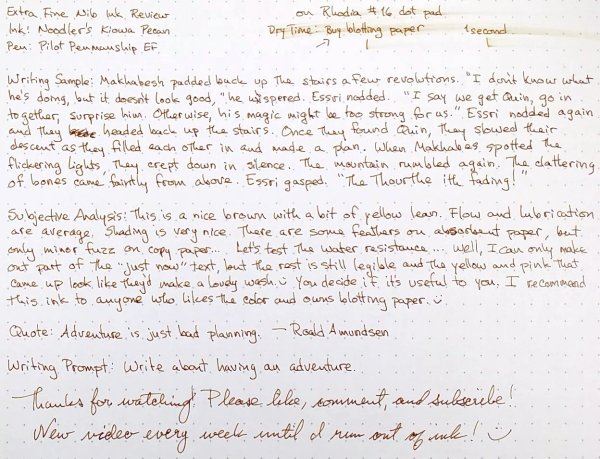 Extra Fine Nib Ink Review
on Rhodia #16 dot pad
Ink: Noodler's Kiowa Pecan
Dry Time: Buy blotting paper 1 second
Pen: Pilot Penmanship EF
Writing Sample: Makhabesh padded back up the stairs a few revolutions. "I don't know what
he's doing, but it doesn't look good," he wispered. Essri nodded. "I say we get Quin, go in
together, surprise him. Otherwise, his magic might be too strong for us." Essri nodded again
and they headed back up the stairs. Once they found Quin, they slowed their
descent as they filled each other in and made a plan. When Makhabes spotted the
flickering lights, they crept down in silence. The mountain rumbled again. The clattering
of bones came faintly from above. Essri gasped. "The Thourthe ith fading!"
Subjective Analysis: This is a nice brown with a bit of yellow lean. Flow and lubrication
are average. Shading is very nice. There are some feathers on absorbent paper, but
only minor fuzz on copy paper... Let's test the water resistance ... Well, I can only make
out part of the "just now" text, but the rest is still legible and the yellow and pink that
came up look like they'd make a lovely wash. You decide if it's useful to you. I recommend
this ink to anyone who likes the color and owns blotting paper.
Quote: Adventure is just bad planning. — Roald Amundsen
Writing Prompt: Write about having an adventure.
Thanks for watching! Please like, comment, and subscribe!
New video every week until I run out of ink!